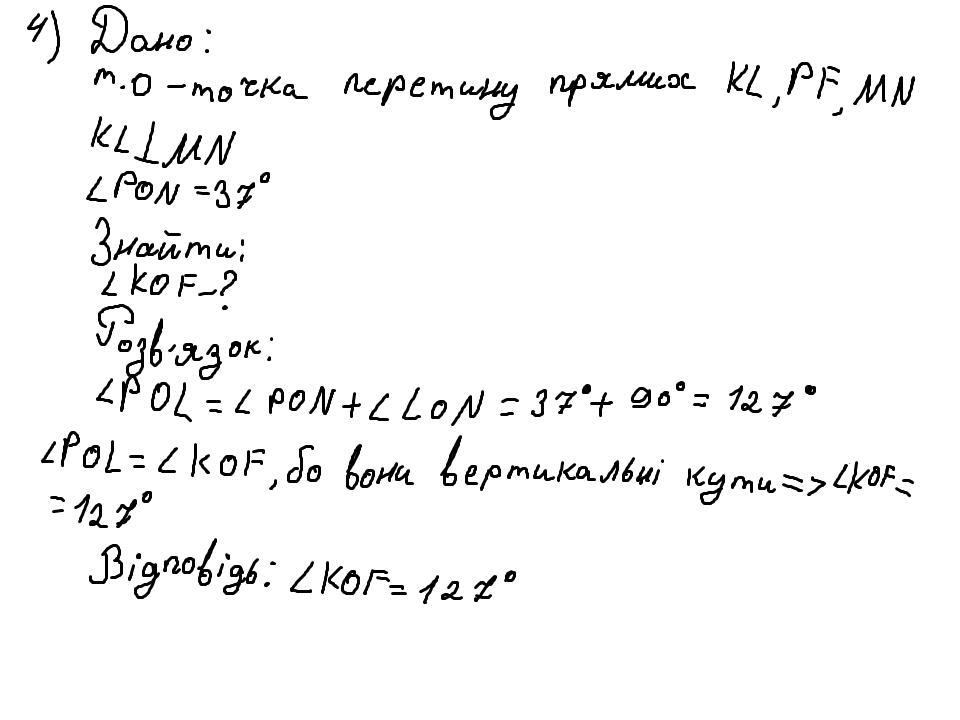 4) Дано:
т.О – точка перетину прямих KL, PF, MN
KL⊥MN
∠PON = 37°
Знайти:
∠KOF – ?
Розв'язок:
∠POL = ∠PON + ∠LON = 37° + 90° = 127°
∠POL = ∠KOF, бо вони вертикальні кути => ∠KOF =
= 127°
Відповідь: ∠KOF = 127°